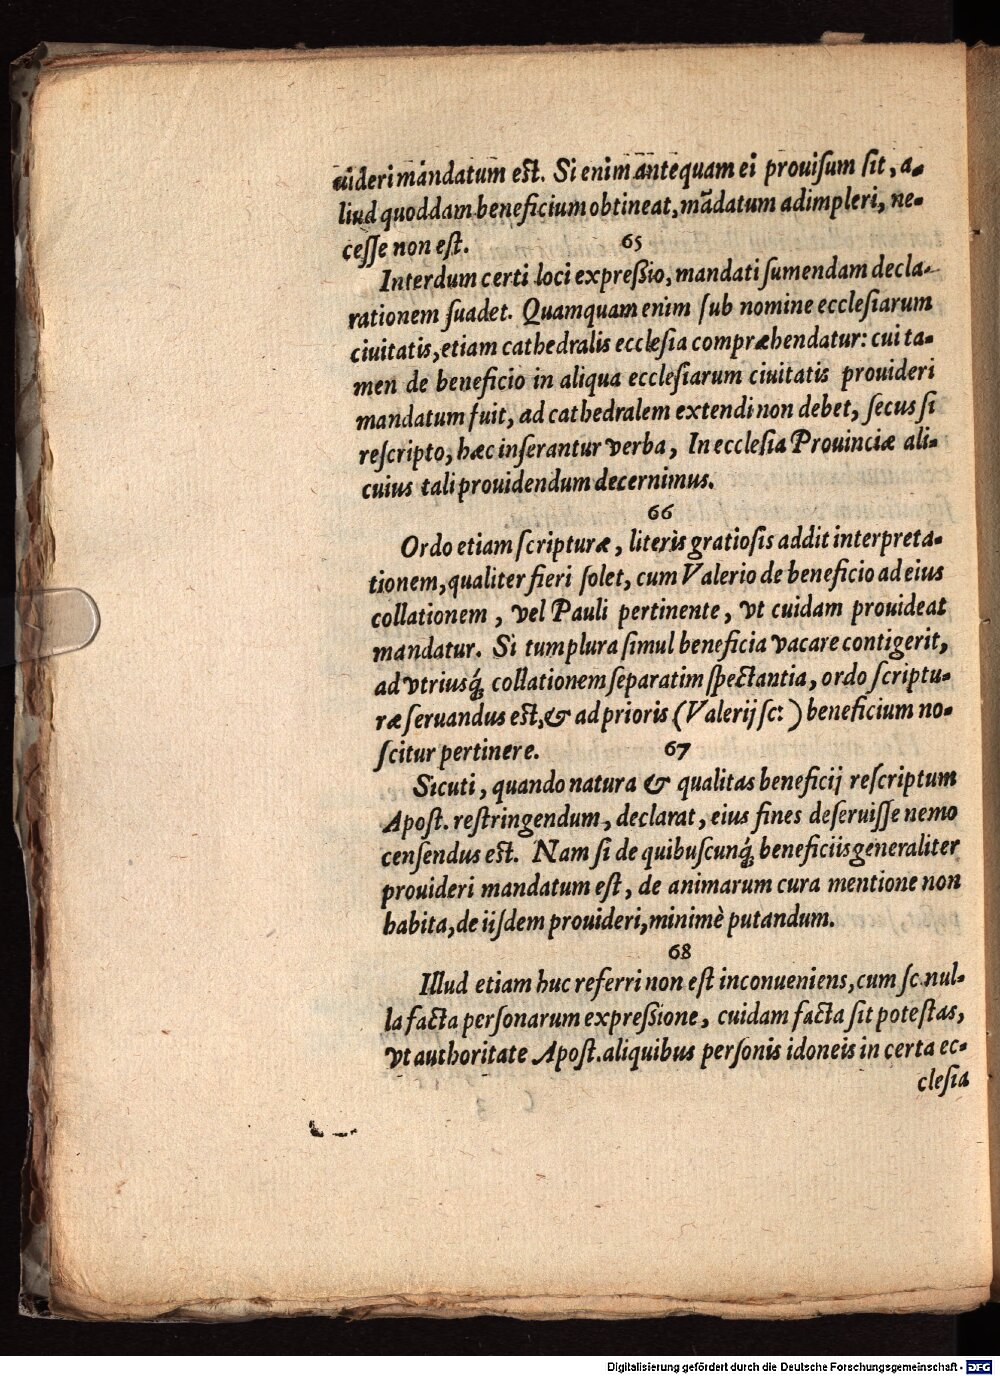 uideri mandatum est. Si enim antequam ei prouiſum ſit, a-
liud quoddam beneficium obtineat, mãdatum adimpleri, ne-
ceſſe non eſt.
65
Interdum certi loci expreſsio, mandati ſumendam decla-
rationem ſuadet. Quamquam enim ſub nomine eccleſiarum
ciuitatis, etiam cathedralis eccleſia compræhendatur: cui ta-
men de beneficio in aliqua eccleſiarum ciuitatis prouideri
mandatum fuit, ad cathedralem extendi non debet, ſecus ſi
reſcripto, hæc inſerantur verba, In eccleſia Prouinciæ ali-
cuius tali prouidendum decernimus.
66
Ordo etiam ſcripturæ, literis gratioſis addit interpreta-
tionem, qualiter fieri ſolet, cum Valerio de beneficio ad eius
collationem, vel Pauli pertinente, vt cuidam prouideat
mandatur. Si tum plura ſimul beneficia vacare contigerit,
ad vtriusq́; collationem ſeparatim ſpectantia, ordo ſcriptu-
ræ ſeruandus eſt, & ad prioris (Valerij ſc:) beneficium no-
ſcitur pertinere.
67
Sicuti, quando natura & qualitas beneficij reſcriptum
Apoſt. reſtringendum, declarat, eius fines deſeruiſſe nemo
cenſendus eſt. Nam ſi de quibuſcunq́; beneficiis generaliter
prouideri mandatum eſt, de animarum cura mentione non
habita, de iiſdem prouideri, minimè putandum.
68
Illud etiam huc referri non eſt inconueniens, cum ſc. nul-
la facta perſonarum expreſsione, cuidam facta ſit poteſtas,
vt authoritate Apoſt. aliquibus perſonis idoneis in certa ec-
cleſia
Digitalisierung gefördert durch die Deutsche Forschungsgemeinschaft - DFG